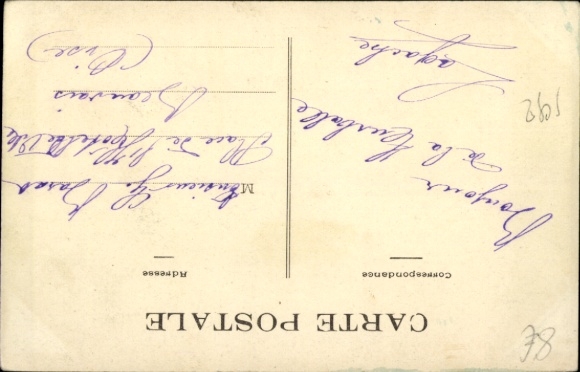 CARTE POSTALE
Correspondance
Adresse
Bonjour
de la
Lagache
M
Monsieur G.
Place de l'Hotel de Ville
Beauvais
(Oise)
78